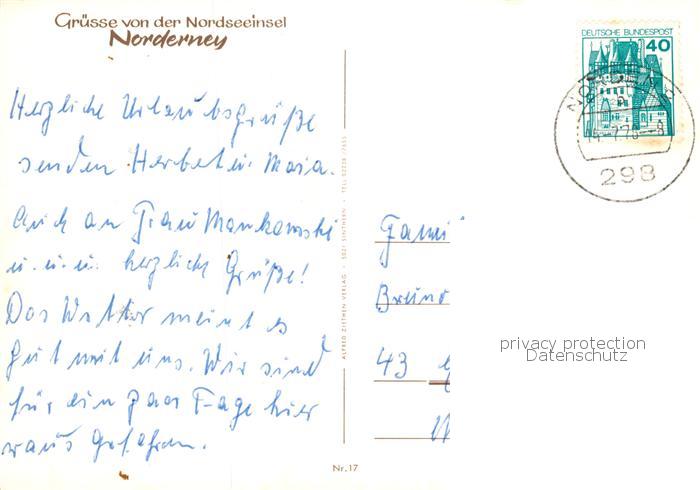 Grüsse von der Nordseeinsel
Norderney
DEUTSCHE BUNDESPOST
40
298
Herzliche Urlaubsgrüße
senden Herbert u. Maria.
Auch an Frau Mankowski
u. u. u. herzliche Grüße!
Das Wetter meint es
gut mit uns. Wir sind
für ein paar Tage hier
raus gefahren.
ALFRED ZIETHEN VERLAG · 5021 SINTHERN ·
Fami
Bruno
43
privacy protection
Datenschutz
Nr. 17